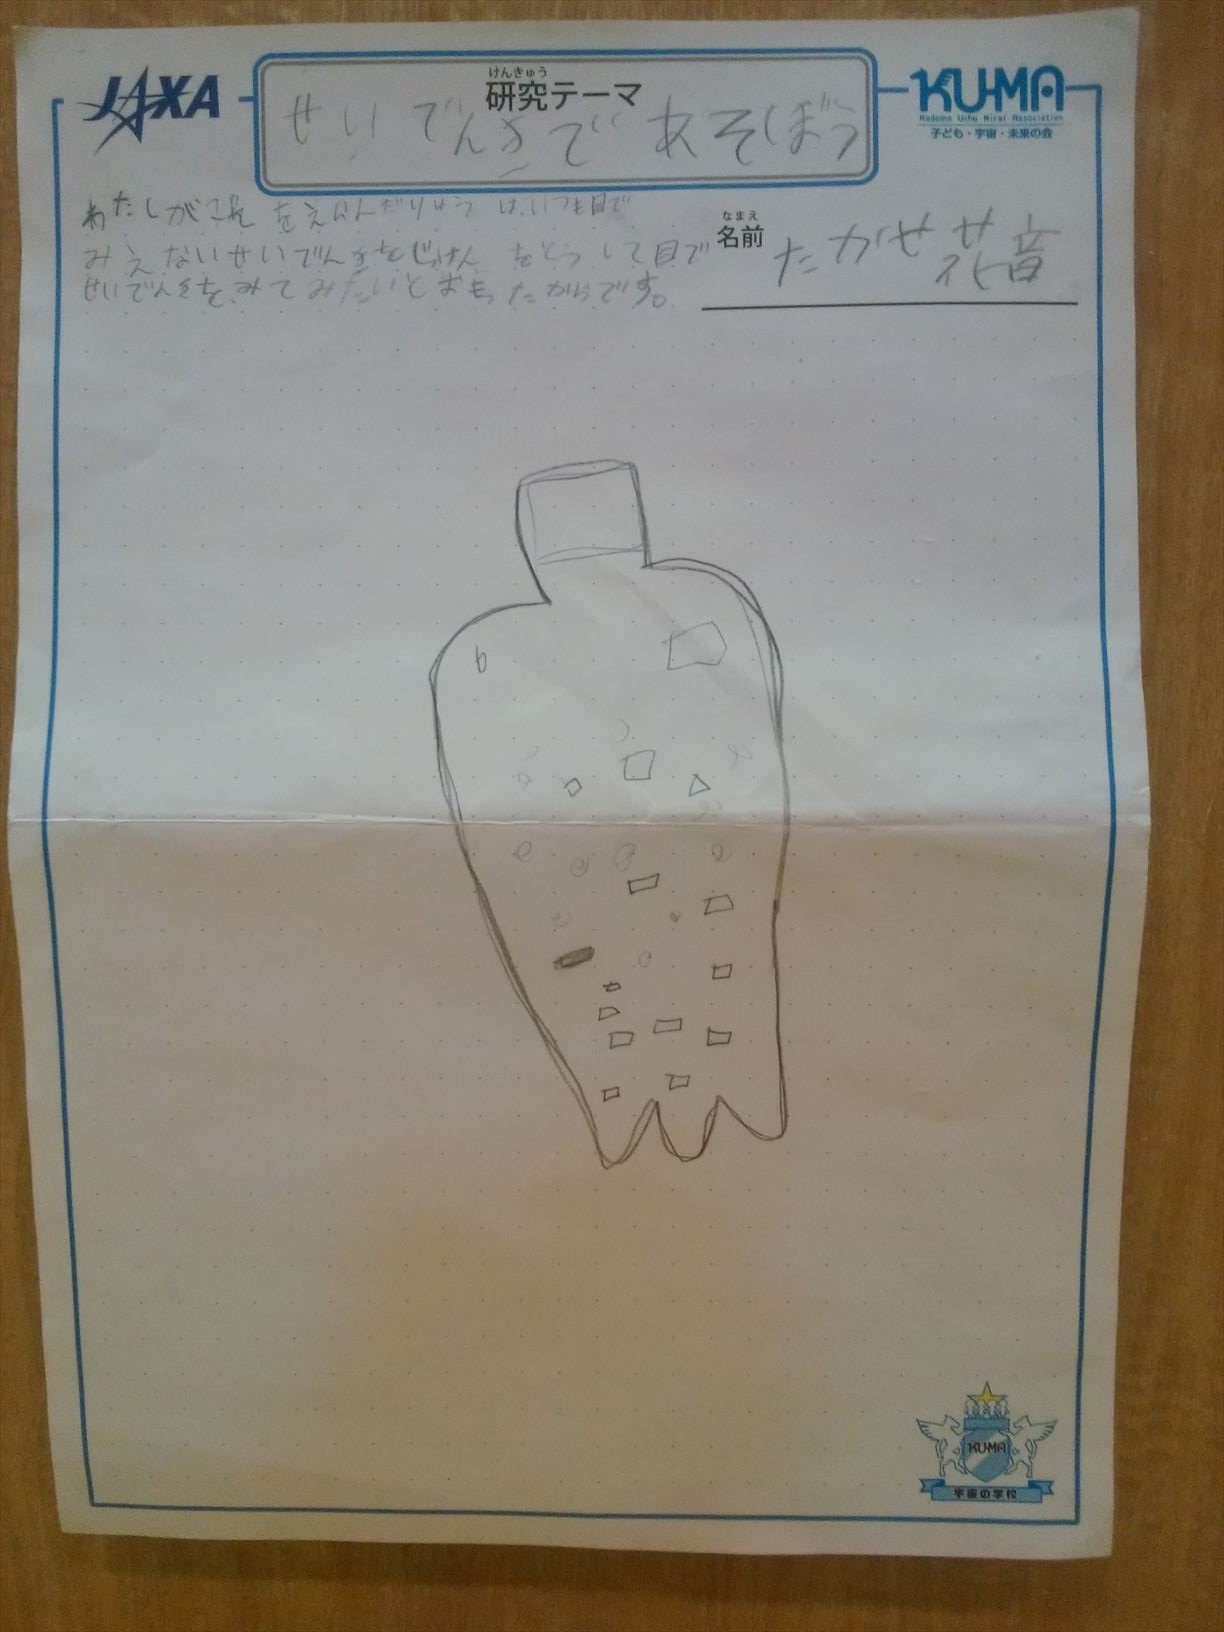 JAXA
けんきゅう
研究テーマ
せいでんきであそぼう
KU-MA
Kodomo Uchu Mirai Association
子ども・宇宙・未来の会
わたしがこれをえらんだりゆうは、いつも目で
みえないせいでんきをじっけんをとうして目で
せいでんきを、みてみたいとおもったからです。
なまえ
名前
たかせ 花音
KUMA
宇宙の学校